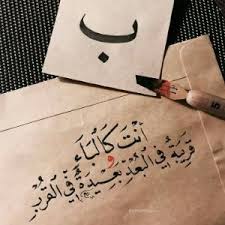 ب
أنتَ كالبَاءِ
قريبةٌ في البُعدِ بعيدةٌ في القُربِ